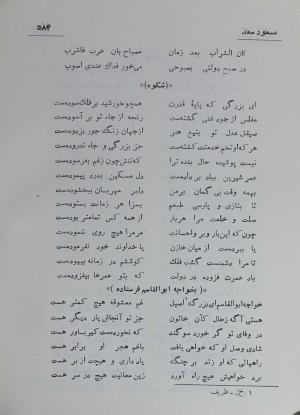 مسعود سعد ۵۸۴
کان الشراب بعد زمان مصباح بان عرب فاشرب
در صبح دولتی بصبوحی می‌خور فداک عندی اصوب
«(شکوه)»
ای بزرگی که پایهٔ قدرت همچو خورشید بر فلک سوده‌ست
مفلس از جود غنی گشته‌ست رنجه از جاه تو بر آسوده‌ست
صیقل عدل تو بتیغ هنر از جهان زنگ جور بزدوده‌ست
هر که او تخم خدمتت کشته‌ست جز بزرگی و جاه ندروده‌ست
نیست پوشیده حال بنده ترا که تنش چون غم بفرسوده‌ست
عمر شیرین بباد بر داده‌ست دل مسکین بدرد پیموده‌ست
بهمه وقت بی گمان بر من دلبر مهربان ببخشوده‌ست
تا بتازی و پارسی طبعم بسزا هر زمانت بستوده‌ست
صلت و خلعت مرا هر بار از همه کس تمامتر بوده‌ست
چون که این بار وبر واحسانت مر مرا هیچ روی ننموده‌ست
یا ببرده‌ست از میان خازن یا خداوند خود نفرموده‌ست
تا مرا دشمنست گشت فلک کوششم در زمانه بیهوده‌ست
باد عمرت فزوده در دولت که بتو عمرها بیفزوده‌ست
«(بخواجه ابوالقاسم فرستاده)»
خواجه ابوالقاسم ای بزرگ اصیل غم معشوقه هیچ کمتر هست
هستی آگه ز حال کآن خاتون جز تو آنجاش یار دیگر هست
در وفای تو گر خورد سوگند که نخورده‌ست کیر باور هست
شادی وصل او که خواهی یافت با غم هجر او برابر هست
راههائی که او زند بر چنگ یاد داری و هیچت از بر هست
برد خواهیش هیچ راه آورد زین معانیت هیچ در سر هست
۱ خ ل ـ ظریف